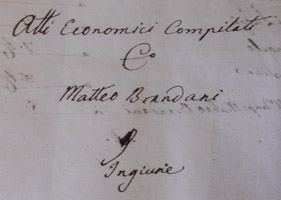 Atti Economici Compilati
Co
Matteo Brandani
p
Ingiurie